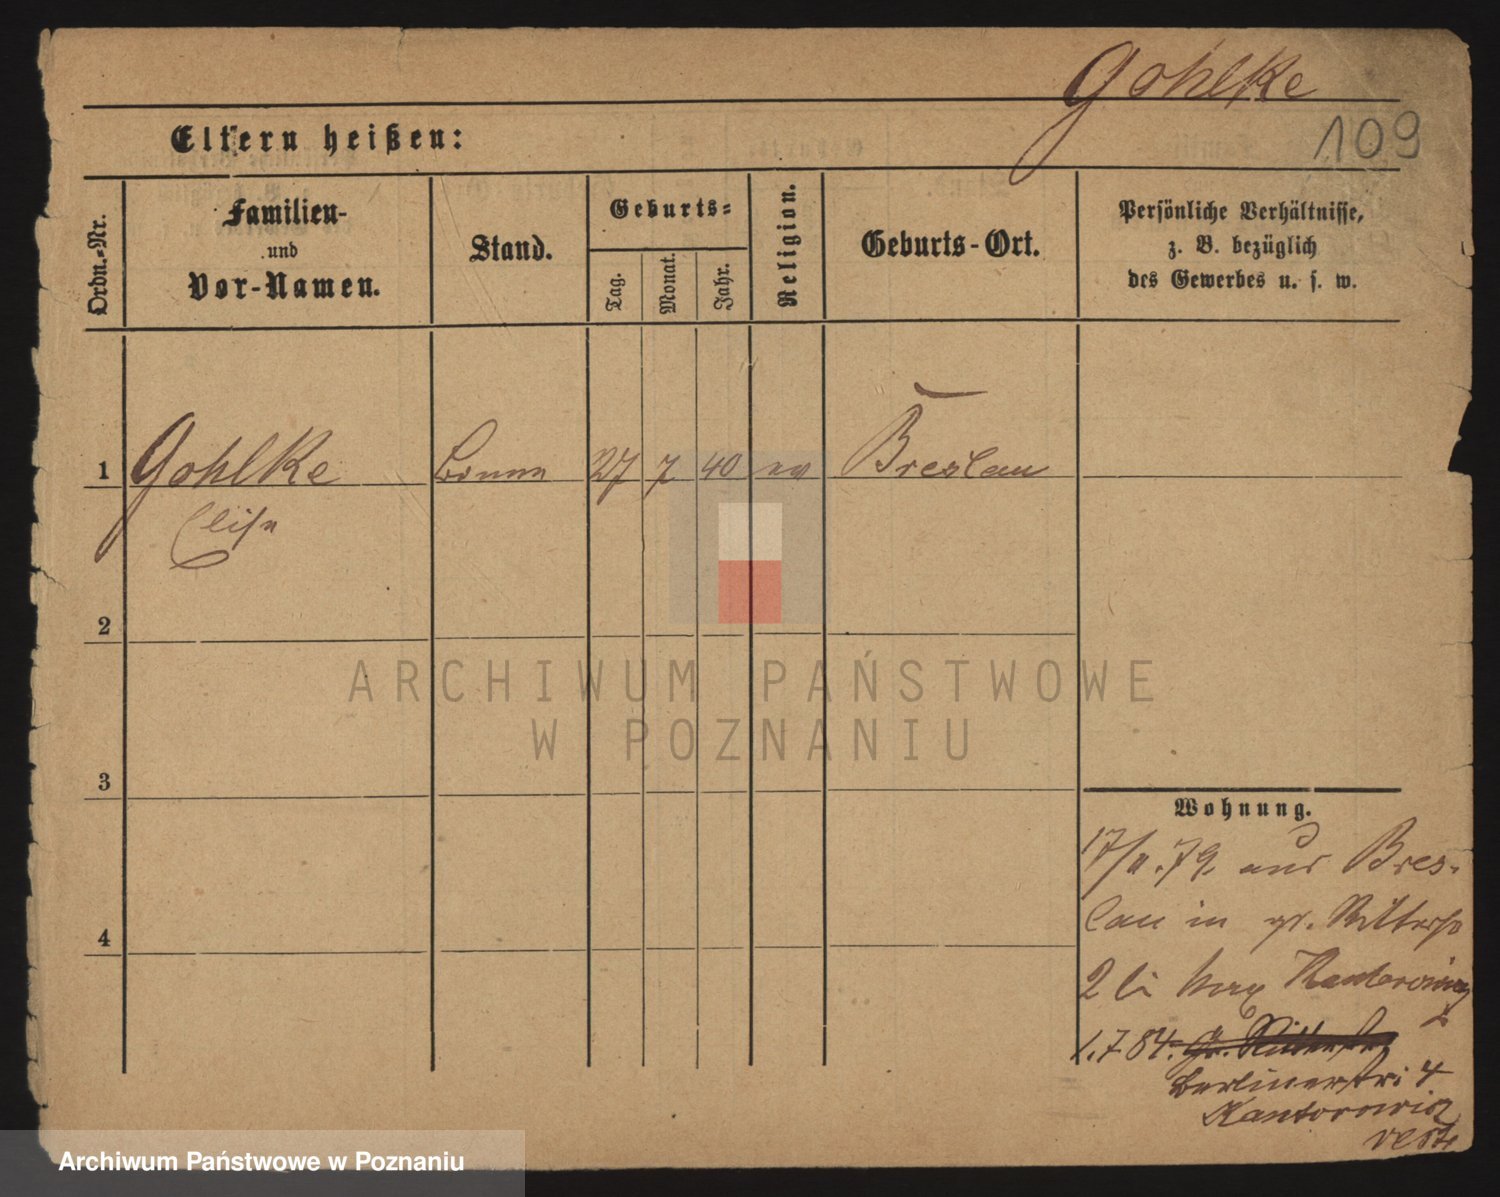 Gohlke
109
Eltern heißen:
Ordn.-Nr.
Familien-
und
Vor-Namen.
Stand.
Geburts-
Tag.
Monat.
Jahr.
Religion.
Geburts-Ort.
Persönliche Verhältnisse,
z. B. bezüglich
des Gewerbes u. s. w.
1 Gohlke Bonne 27 7 40 ev Breslau
Elise
2
3
4
Wohnung.
17/11.79. aus Bres-
lau in gr. Ritterstr
2 bei Kantorowicz
1.7.84. Gr. Ritterstr
Berlinerstr. 4
Kantorowicz
ARCHIWUM PAŃSTWOWE
W POZNANIU
Archiwum Państwowe w Poznaniu